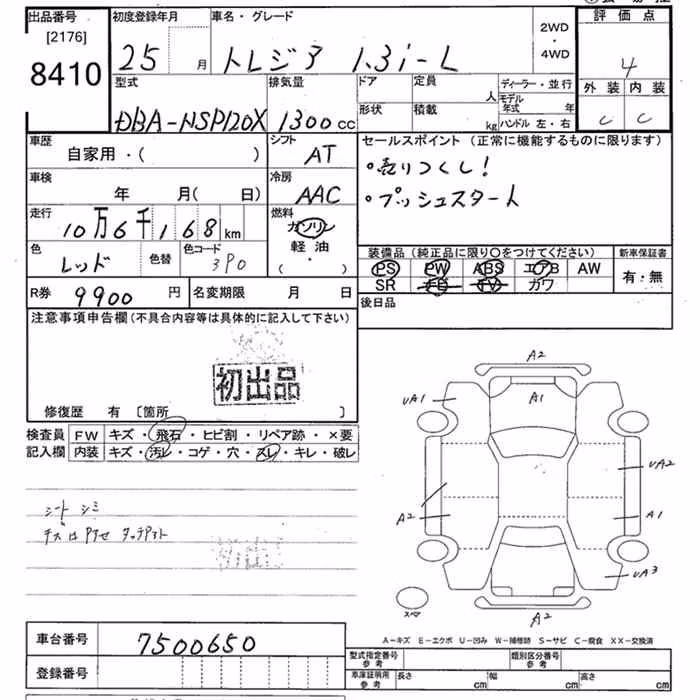 出品番号
[2176]
8410
初度登録年月
25 月
車名・グレード
トレジア 1.3i-L
2WD
・
4WD
評価点
4
外装 内装
C C
型式
DBA-NSP120X
排気量
1300cc
ドア
形状
定員
人
積載
kg
ディーラー・並行
モデル年式 年
ハンドル 左・右
車歴
自家用・( )
シフト
AT
セールスポイント (正常に機能するものに限ります)
・売りつくし!
・プッシュスタート
車検
年 月( 日)
冷房
AAC
走行
10万6千168km
燃料
ガソリン
軽油
( )
色
レッド
色替
色コード
3P0
装備品(純正品に限り〇をつけてください)
PS PW ABS エアB AW
SR TV カワ
新車保証書
有・無
R券
9900円
名変期限 月 日
後日品
注意事項申告欄(不具合内容等は具体的に記入して下さい)
初出品
修復歴 有 〔箇所 〕
検査員
記入欄
FW キズ・飛石・ヒビ割・リペア跡・×要
内装 キズ・汚レ・コゲ・穴・スレ・キレ・破レ
シート シミ
A2
UA1
A1
UA2
A2
A1
UA3
A2
スペア
A-キズ E-エクボ U-凹み W-補修跡 S-サビ C-腐食 XX-交換済
車台番号
7500650
登録番号
型式指定番号
参考
類別区分番号
参考
車庫証明用
参考
長さ cm 幅 cm 高さ cm